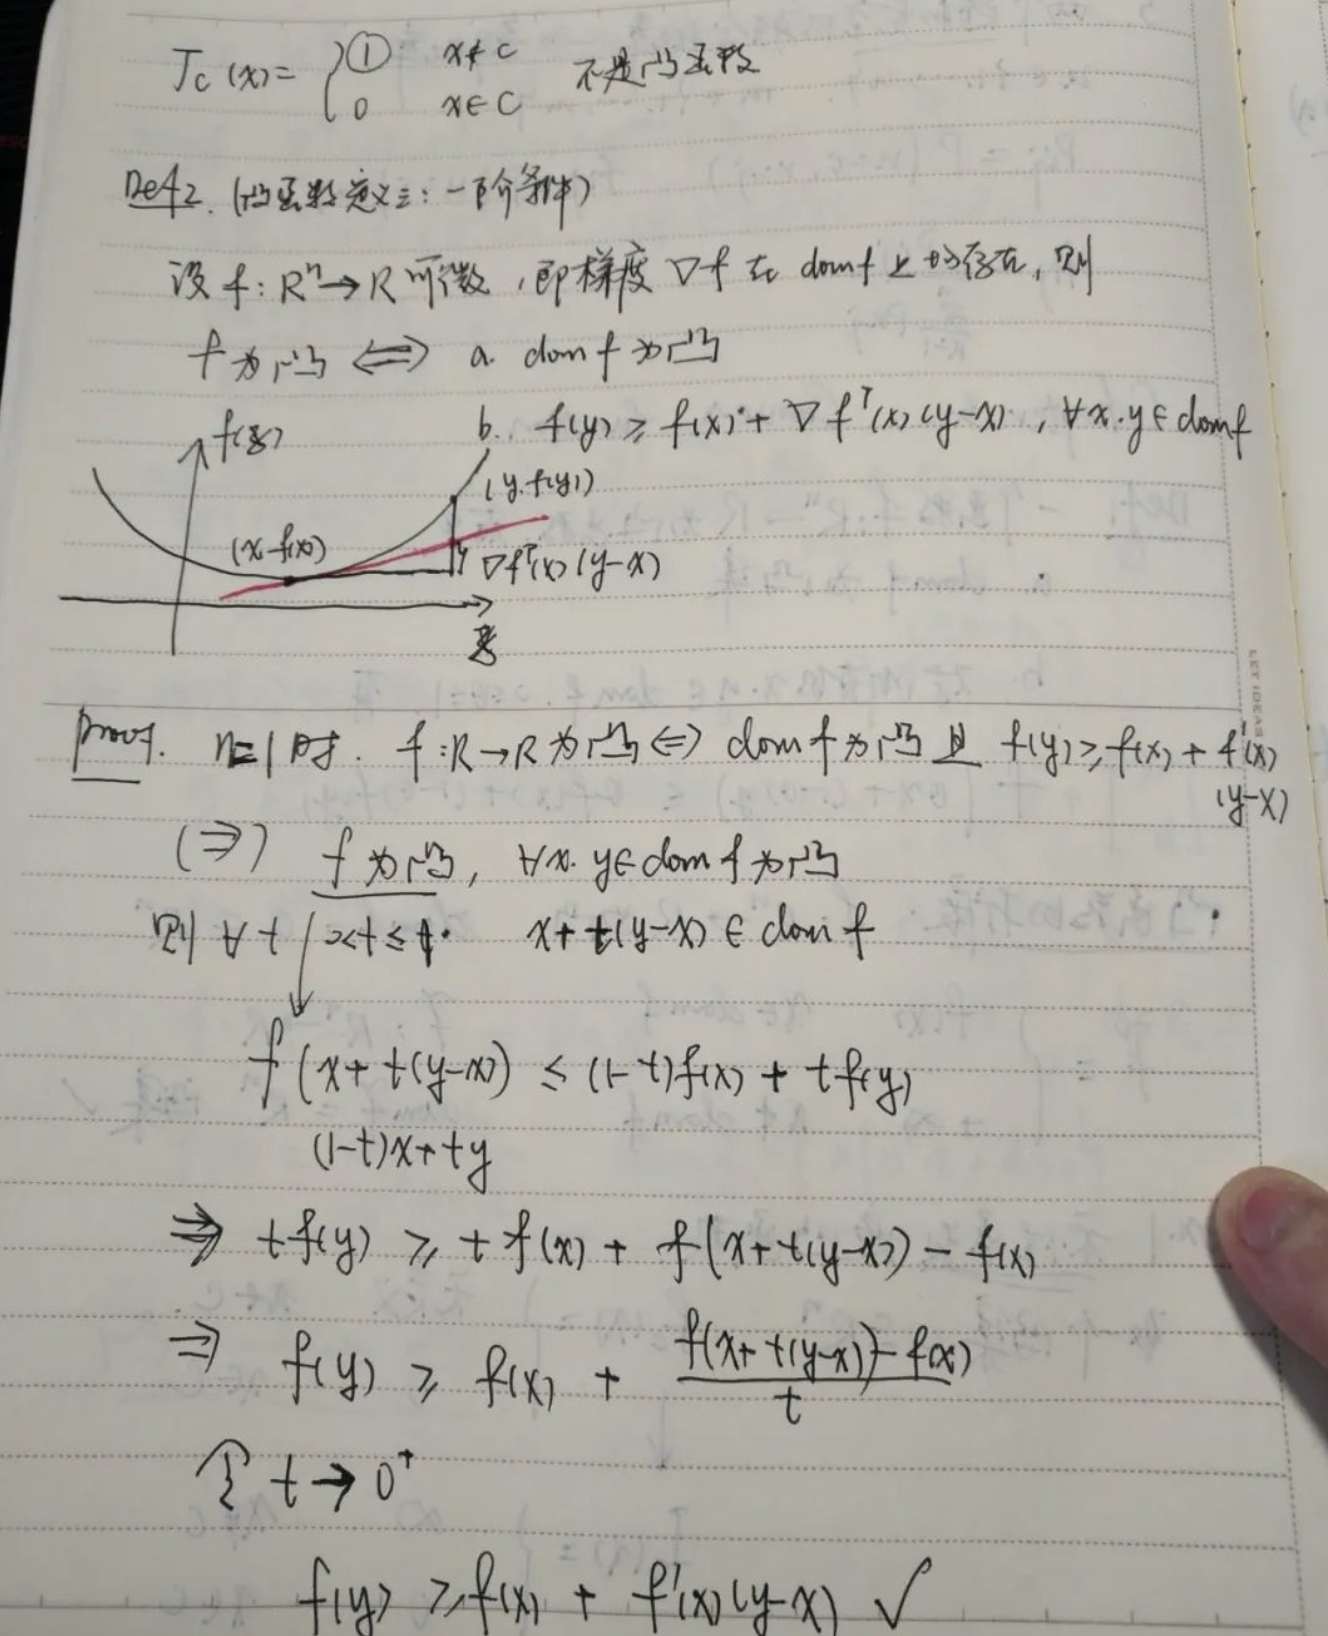 J_C(x) = { ① x∉C 不是凸函数
0 x∈C
Def2. (凸函数定义三:一阶条件)
设 f: Rⁿ→R 可微,即梯度 ∇f 在 dom f 上均存在,则
f 为凸 ⟺ a. dom f 为凸
b. f(y) ≥ f(x) + ∇fᵀ(x)(y-x), ∀x.y∈dom f
f(z)
(y.f(y))
(x.f(x))
∇fᵀ(x)(y-x)
z
Proof. n=1时. f:R→R 为凸 ⟺ dom f 为凸 且 f(y) ≥ f(x) + f'(x)
(y-x)
(⇒) f 为凸, ∀x. y∈dom f 为凸
则 ∀t 0<t≤1. x+t(y-x) ∈ dom f
f(x+t(y-x)) ≤ (1-t)f(x) + tf(y)
(1-t)x+ty
⇒ tf(y) ≥ tf(x) + f(x+t(y-x)) - f(x)
⇒ f(y) ≥ f(x) + \frac{f(x+t(y-x)) - f(x)}{t}
令 t→0⁺
f(y) ≥ f(x) + f'(x)(y-x) ✓